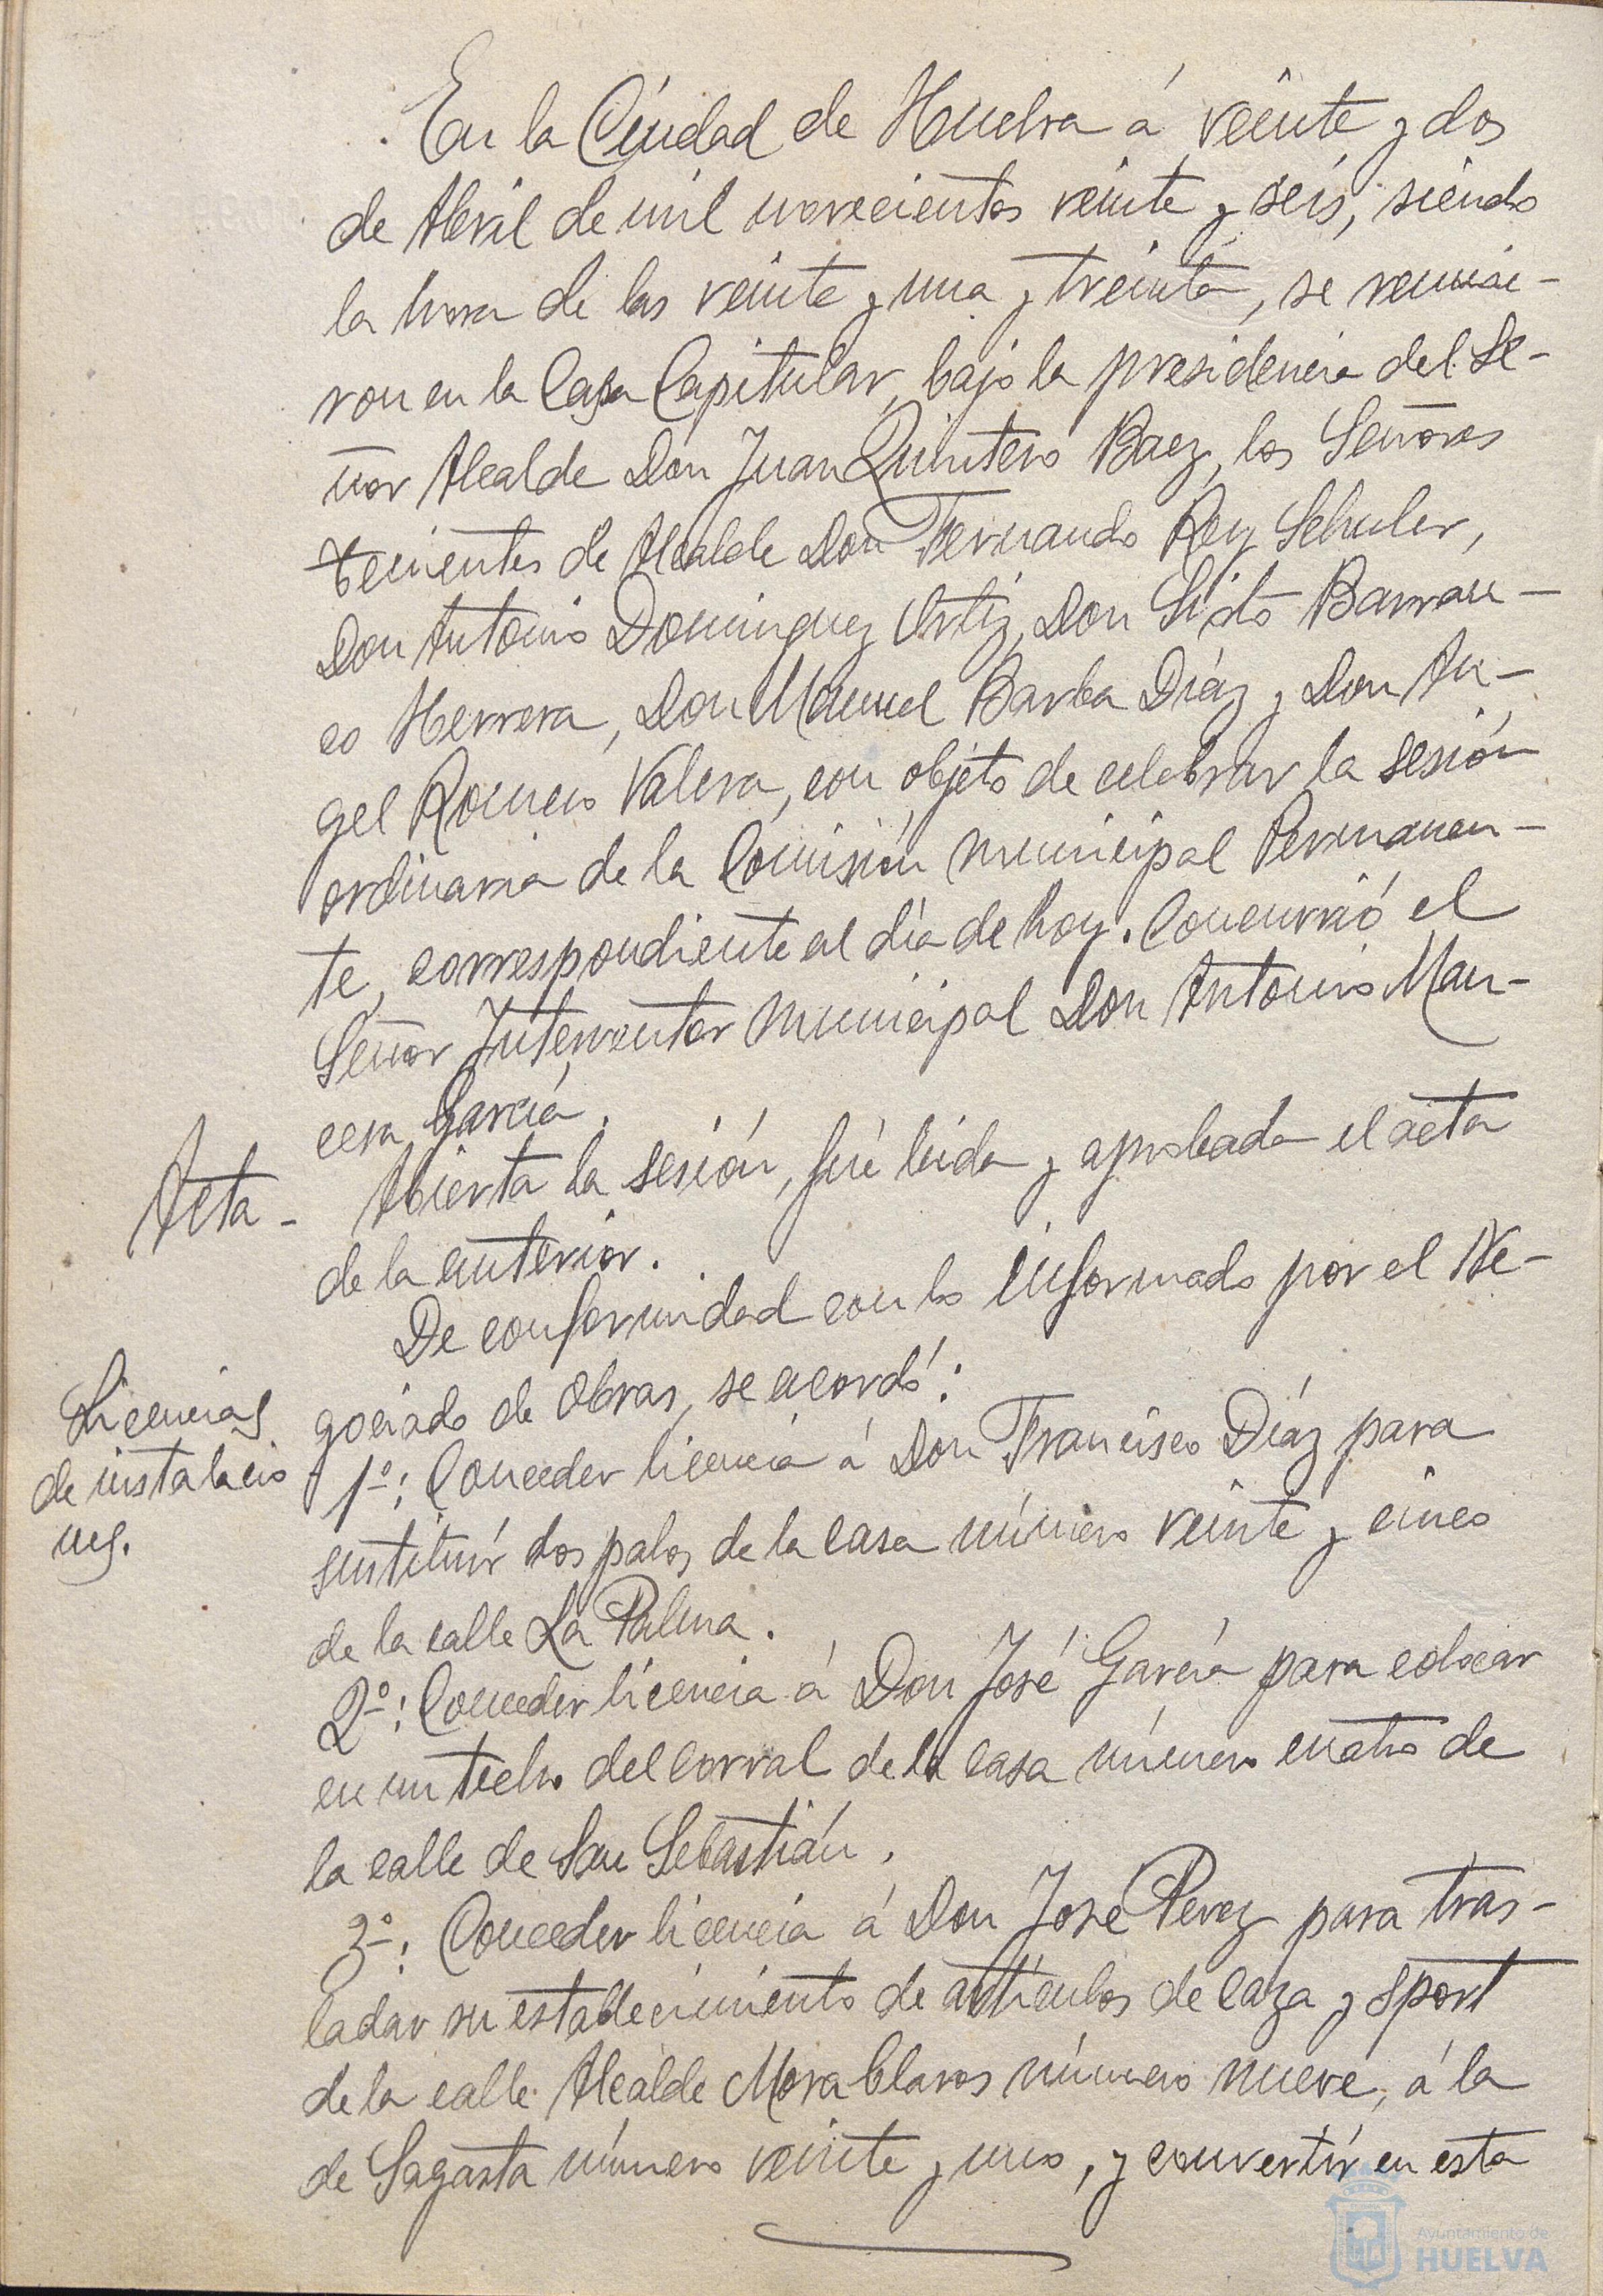 En la Ciudad de Huelva á veinte y dos
de Abril de mil novecientos veinte y seis, siendo
la hora de las veinte y una y treinta, se reunie-
ron en la Casa Capitular, bajo la presidencia del Se-
ñor Alcalde Don Juan Quintero Baez, los Señores
tenientes de Alcalde Don Fernando Rey Schuler,
Don Antonio Dominguez Ortiz, Don Sisto Barran-
co Herrera, Don Manuel Barba Diáz y Don An-
gel Romero Valera, con objeto de celebrar la sesión
ordinaria de la Comisión municipal Permanen-
te, correspondiente al día de hoy. Concurrió el
Señor Interventor municipal Don Antonio Man-
cera García.
Acta - Abierta la sesión, fué leida y aprobada el acta
de la anterior.
De conformidad con lo informado por el Ne-
Licencias
de instalacio
nes.
gociado de Obras, se acordó:
1º: Conceder licencia á Don Francisco Diáz para
sustituír dos palos de la casa número veinte y cinco
de la calle La Palma.
2º: Conceder licencia á Don José García para colocar
en un techo del corral de la casa número cuatro de
la calle de San Sebastián.
3º: Conceder licencia á Don José Perez para tras-
ladar su establecimiento de artículos de caza y sport
de la calle Alcalde Mora Claros número nueve, á la
de Sagasta número veinte y uno, y convertír en esta
Ayuntamiento de
HUELVA